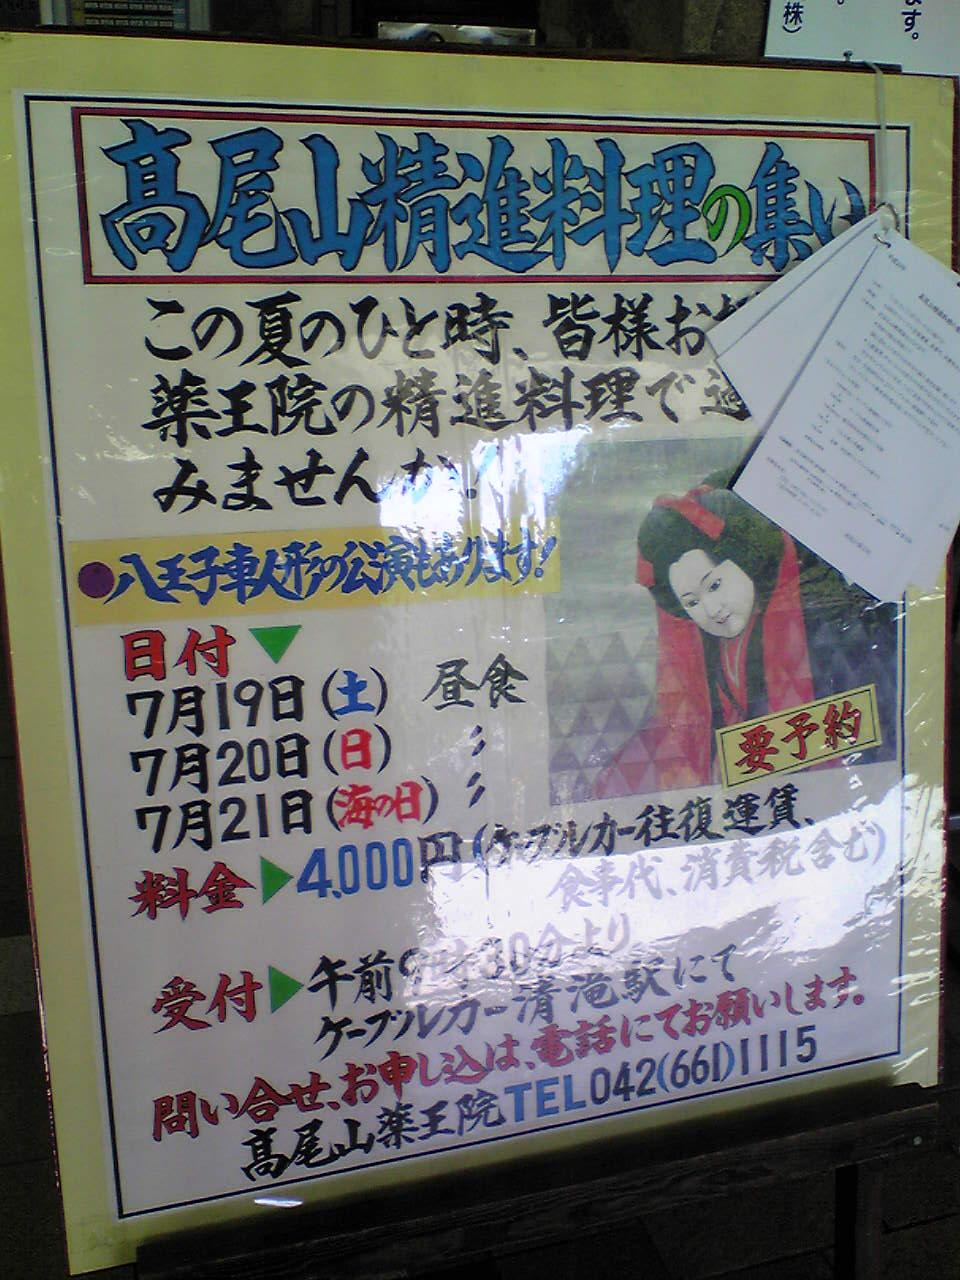 ます。
株)
髙尾山精進料理の集い
この夏のひと時、皆様お
薬王院の精進料理で過
みませんか!
●八王子車人形の公演もあります!
日付▼
7月19日(土) 昼食
7月20日(日) 〃
7月21日(海の日) 〃
要予約
料金▶4,000円(ケーブルカー往復運賃、
食事代、消費税含む)
受付▶午前9時30分より
ケーブルカー清滝駅にて
問い合せ、お申し込は、電話にてお願いします。
髙尾山薬王院TEL042(661)1115